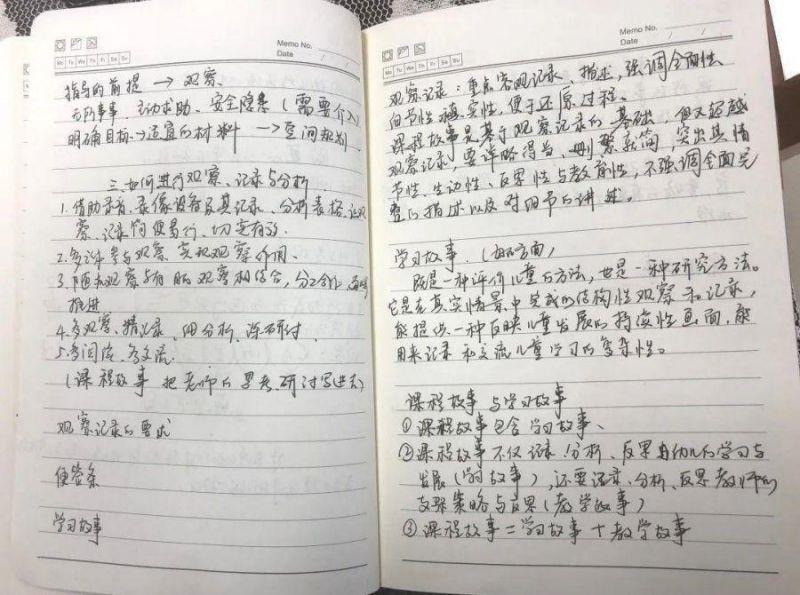 Memo No.
Date
Mo Tu We Th Fr Sa Su
指导的前提 → 观察
无所事事、主动求助、安全隐患(需要介入)
明确目标→适宜的材料 → 空间规划
三、如何进行观察、记录与分析
1.借助录音、录像设备及其记录、分析表格,让观
察、记录简便易行、切实有效。
2.多次参与观察,实现观察作用
3.随机观察与有目的观察相结合,分工合作,
推进
4.多观察、精记录、细分析、深研讨
5.多阅读、多交流
(课程故事 把老师的思考、研讨写进去)
观察记录的要求
便签条
学习故事
Memo No.
Date
Mo Tu We Th Fr Sa Su
观察记录:重点客观记录、描述,强调全面性
细节性、真实性,便于还原过程。
课程故事是基于观察记录的基础,但又超越
观察记录,要详略得当、删繁就简,突出其情
节性、生动性、反思性与教育性,不强调全面完
整的描述以及对细节的讲述。
学习故事.(
既是一种评价儿童的方法,也是一种研究方法。
它是在真实情景中完成的结构性观察和记录,
能提供一种反映儿童发展的持续性画面,能
用来记录和交流儿童学习的复杂性。
课程故事与学习故事
①课程故事包含学习故事、
②课程故事不仅记录、分析、反思幼儿的学习与
发展(学习故事),还要记录、分析、反思教师的
支持策略与反思(教学故事)
③课程故事=学习故事+教学故事